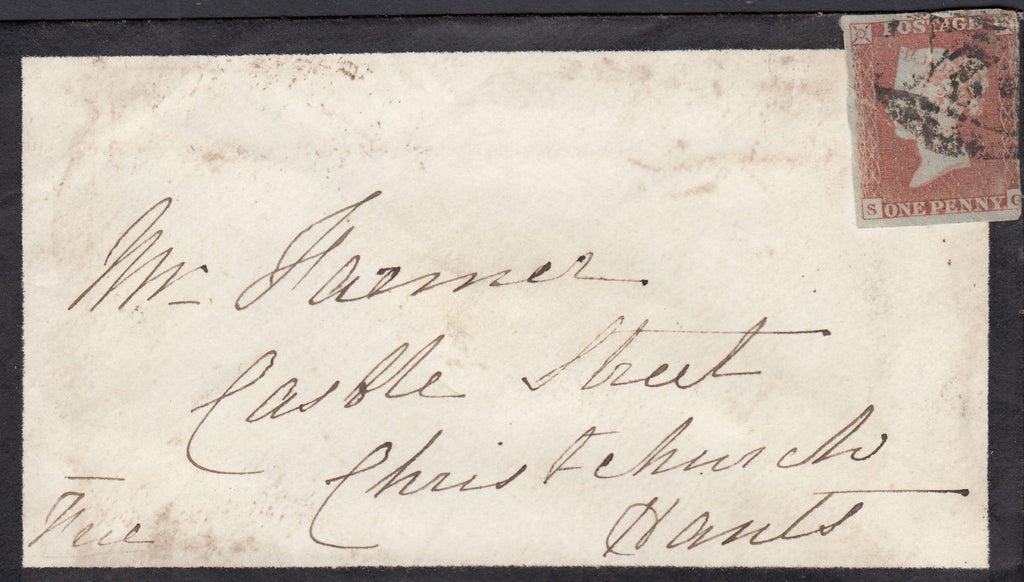 POSTAGE
S ONE PENNY G
Mr Farmer
Castle Street
Christchurch
Hants